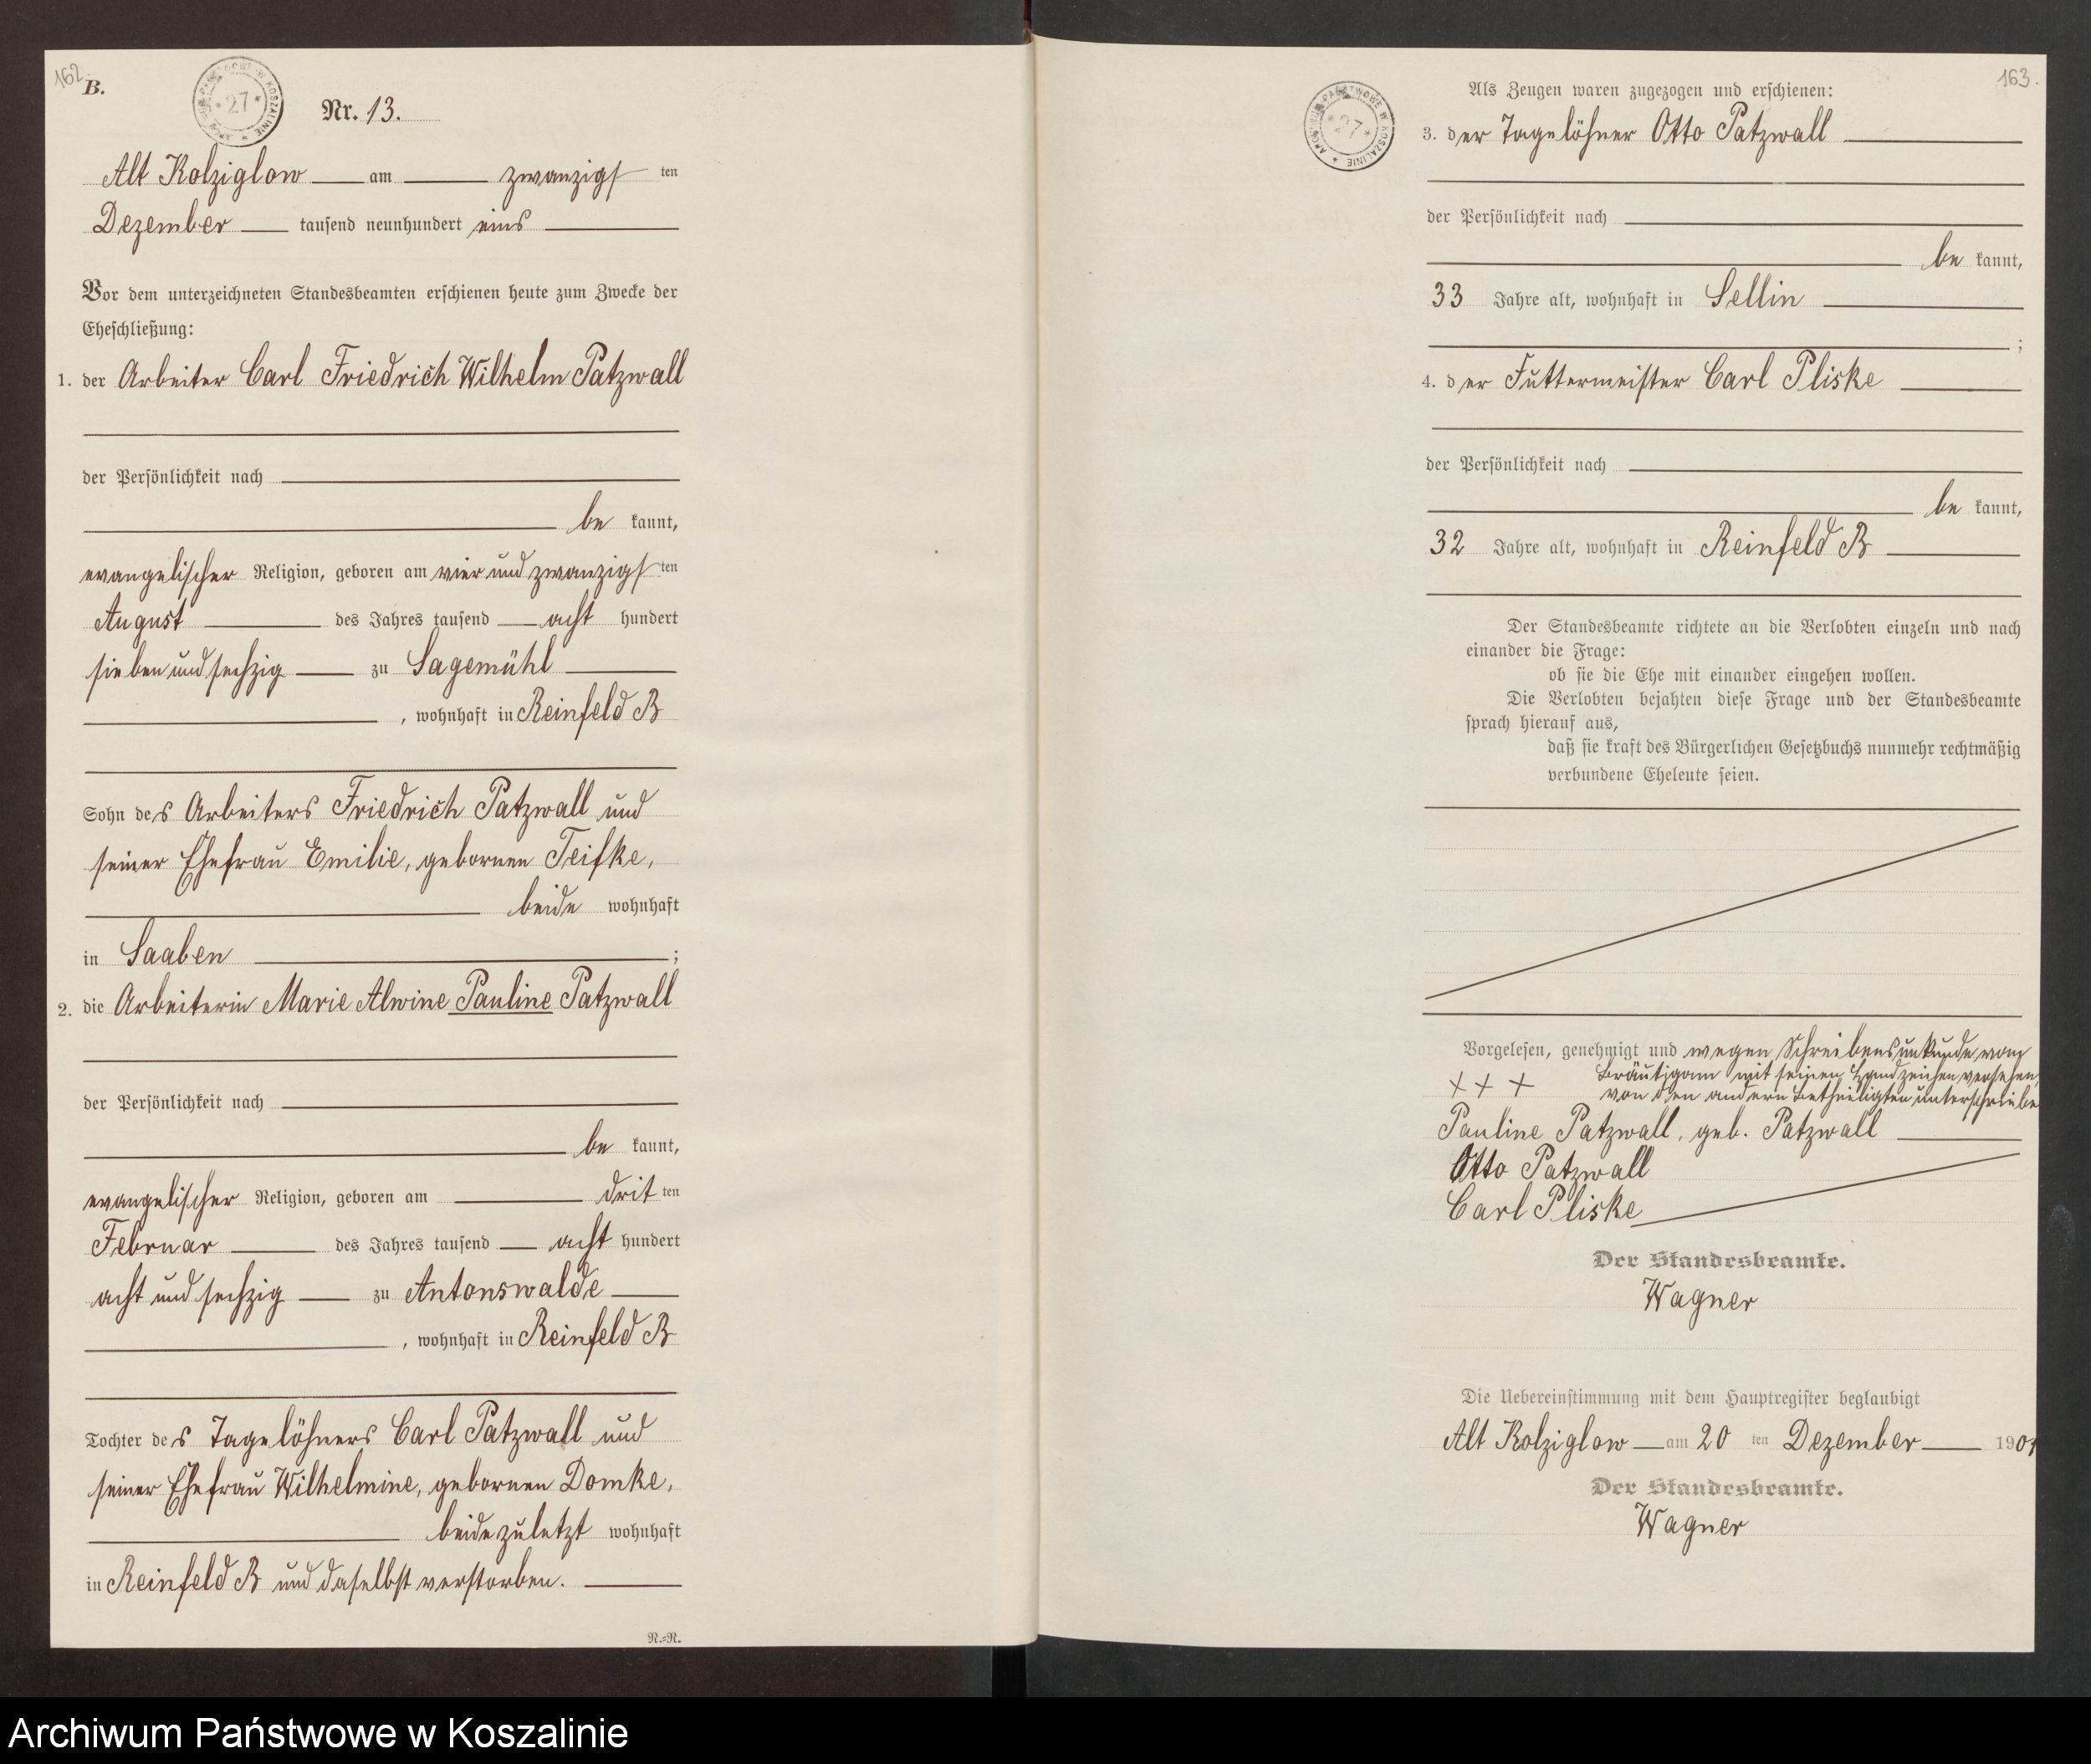 162.
B.
ARCHIWUM PAŃSTWOWE W KOSZALINIE * 27 *
Nr. 13.
Alt Kolziglow am zwanzigsten
Dezember tausend neunhundert eins
Vor dem unterzeichneten Standesbeamten erschienen heute zum Zwecke der
Eheschließung:
1. der Arbeiter Carl Friedrich Wilhelm Patzwall
der Persönlichkeit nach
be kannt,
evangelischer Religion, geboren am vier und zwanzigsten
August des Jahres tausend acht hundert
sieben und sechzig zu Sagemühl
, wohnhaft in Reinfeld B
Sohn des Arbeiters Friedrich Patzwall und
seiner Ehefrau Emilie, gebornen Teifke,
beide wohnhaft
in Saaben ;
2. die Arbeiterin Marie Alwine Pauline Patzwall
der Persönlichkeit nach
be kannt,
evangelischer Religion, geboren am dritten
Februar des Jahres tausend acht hundert
acht und sechzig zu Antonswalde
, wohnhaft in Reinfeld B
Tochter des Tagelöhners Carl Patzwall und
seiner Ehefrau Wilhelmine, gebornen Domke,
beide zuletzt wohnhaft
in Reinfeld B und daselbst verstorben.
N.=N.
163.
ARCHIWUM PAŃSTWOWE W KOSZALINIE * 27 *
Als Zeugen waren zugezogen und erschienen:
3. der Tagelöhner Otto Patzwall
der Persönlichkeit nach
be kannt,
33 Jahre alt, wohnhaft in Sellin
;
4. der Futtermeister Carl Pliske
der Persönlichkeit nach
be kannt,
32 Jahre alt, wohnhaft in Reinfeld B
Der Standesbeamte richtete an die Verlobten einzeln und nach
einander die Frage:
ob sie die Ehe mit einander eingehen wollen.
Die Verlobten bejahten diese Frage und der Standesbeamte
sprach hierauf aus,
daß sie kraft des Bürgerlichen Gesetzbuchs nunmehr rechtmäßig
verbundene Eheleute seien.
Vorgelesen, genehmigt und wegen Schreibensunkunde vom
Bräutigam mit seinen Handzeichen versehen,
+ + + von den andern Betheiligten unterschrieben
Pauline Patzwall, geb. Patzwall
Otto Patzwall
Carl Pliske
Der Standesbeamte.
Wagner
Die Uebereinstimmung mit dem Hauptregister beglaubigt
Alt Kolziglow am 20 ten Dezember 1901
Der Standesbeamte.
Wagner
Archiwum Państwowe w Koszalinie